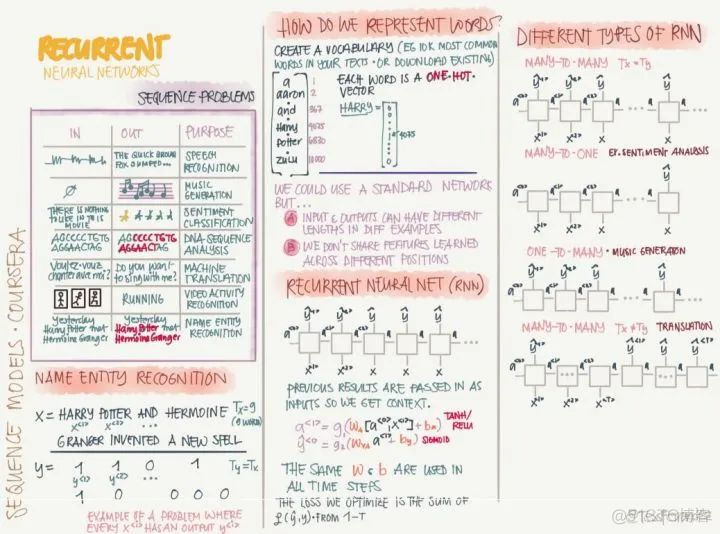 RECURRENT
NEURAL NETWORKS
SEQUENCE PROBLEMS
IN OUT PURPOSE
THE QUICK BROWN FOX JUMPED... SPEECH RECOGNITION
MUSIC GENERATION
THERE IS NOTHING TO LIKE IN THIS MOVIE
SENTIMENT CLASSIFICATION
AGCCCCTGTG AGGAACTAG
AGCCCCTGTG AGGAACTAG
DNA-SEQUENCE ANALYSIS
Voulez-vouz chanter avec moi?
Do you want to sing with me?
MACHINE TRANSLATION
RUNNING
VIDEO ACTIVITY RECOGNITION
Yesterday Harry Potter met Hermoine Granger
Yesterday Harry Potter met Hermoine Granger
NAME ENTITY RECOGNITION
SEQUENCE MODELS · COURSERA
NAME ENTITY RECOGNITION
X = HARRY POTTER AND HERMOINE Tx=9
x<1> x<2> ... (9 WORDS)
GRANGER INVENTED A NEW SPELL
y = 1 1 0 1 Ty=Tx
y<1> y<2> ...
1 0 0 0 0
EXAMPLE OF A PROBLEM WHERE
EVERY X<i> HAS AN OUTPUT y<i>
HOW DO WE REPRESENT WORDS?
CREATE A VOCABULARY (EG 10K MOST COMMON
WORDS IN YOUR TEXTS · OR DOWNLOAD EXISTING)
a 1
aaron 2
and 367
Harry 4075
Potter 6830
zulu 10000
EACH WORD IS A ONE·HOT·
VECTOR
HARRY =
4075
WE COULD USE A STANDARD NETWORK
BUT...
A INPUT & OUTPUTS CAN HAVE DIFFERENT
LENGTHS IN DIFF EXAMPLES
B WE DON'T SHARE FEATURES LEARNED
ACROSS DIFFERENT POSITIONS
RECURRENT NEURAL NET (RNN)
PREVIOUS RESULTS ARE PASSED IN AS
INPUTS SO WE GET CONTEXT.
TANH/
RELU
SIGMOID
THE SAME W & b ARE USED IN
ALL TIME STEPS
THE LOSS WE OPTIMIZE IS THE SUM OF
L(ŷ,y) · FROM 1-T
DIFFERENT TYPES OF RNN
MANY-TO-MANY Tx=Ty
MANY-TO-ONE EX. SENTIMENT ANALYSIS
ONE-TO-MANY · MUSIC GENERATION
MANY-TO-MANY Tx≠Ty TRANSLATION